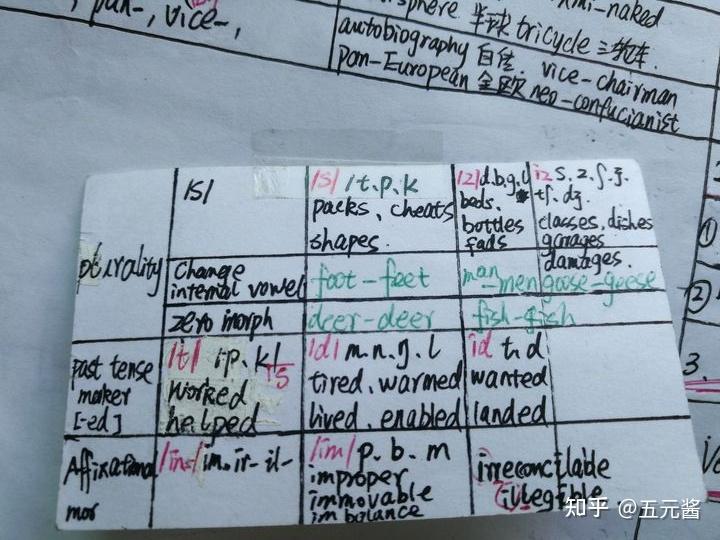 vice-,
sphere 半球 tricycle 三轮车.
autobiography 自传. vice-chairman
pan-European 全欧 neo-confucianist
plurality
/s/
/s/ /t.p.k
packs、cheats
shapes.
/z/d.b.g.l
beds.
bottles
fads
iz s.z.ʃ.ʒ.
tʃ.dʒ.
classes,dishes
garages
damages.
change
internal vowel
foot-feet
man-men
goose-geese
zero morph
deer-deer
fish-fish
past tense
maker
[-ed]
/t/ :p.k
s
worked
helped
/d/ m.n.g.l
tired.warmed
lived.enabled
id t.d
wanted
landed
Affixational
mor
/in-/im.ir-il-
/im/p.b.m
improper
immovable
imbalance
irreconcilabe
illegible.
①
②
3.
知乎 @五元酱